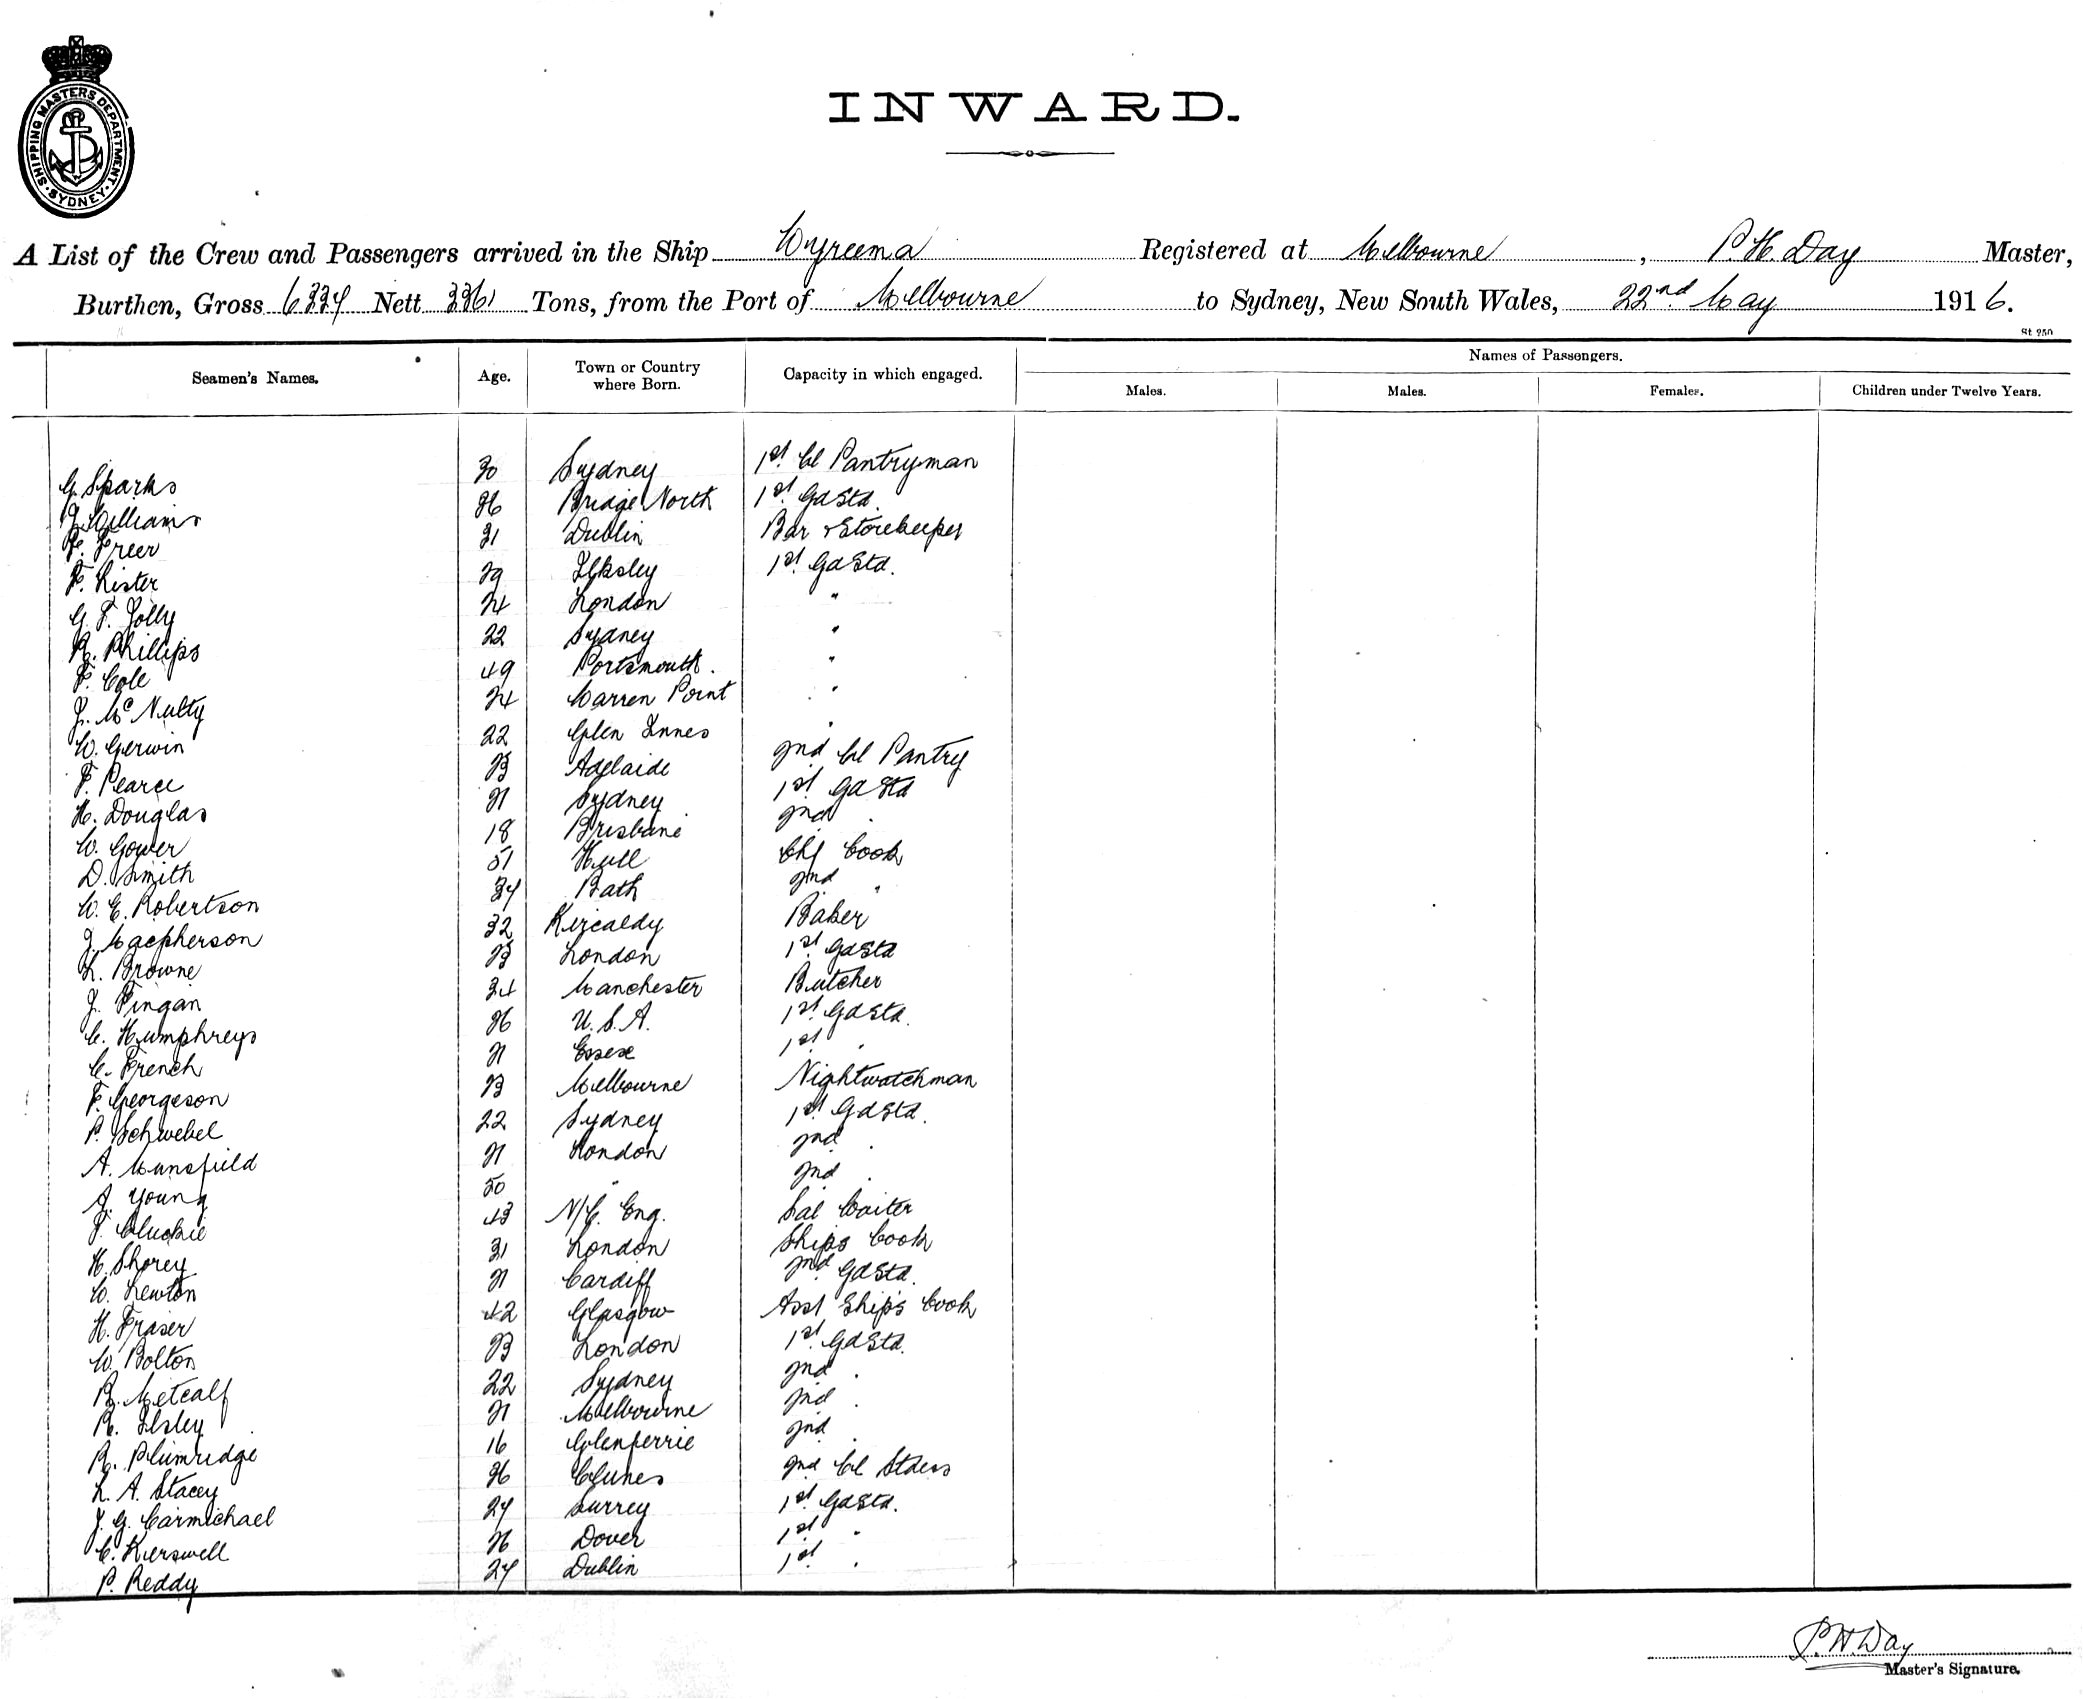 SHIPPING MASTERS DEPARTMENT · SYDNEY ·
INWARD.
A List of the Crew and Passengers arrived in the Ship Wyreema Registered at Melbourne, P. H. Day Master,
Burthen, Gross 6334 Nett 3361 Tons, from the Port of Melbourne to Sydney, New South Wales, 22nd May 1916.
St 250
Names of Passengers.
Seamen's Names. Age. Town or Country where Born. Capacity in which engaged. Males. Males. Females. Children under Twelve Years.
G. Sparks 30 Sydney 1st Cl Pantryman
J. Williams 36 Bridge North 1st Gd Std.
F. Freer 31 Dublin Bar & Storekeeper
F. Lister 29 Ilksley 1st Gd Std.
G. F. Jolly 24 London "
R. Phillips 22 Sydney "
F. Cole 49 Portsmouth. "
J. McNulty 24 Warren Point "
W. Gerwin 22 Glen Innes "
F. Pearce 23 Adelaide 2nd Cl Pantry
H. Douglas 21 Sydney 1st Gd Std
W. Gower 18 Brisbane 2nd "
D. Smith 51 Hull Chf Cook
W. E. Robertson 34 Bath 2nd "
J. Macpherson 32 Kircaldy Baker
L. Browne 23 London 1st Gd Std
J. Fingan 34 Manchester Butcher
C. Humphreys 26 U.S.A. 1st Gd Std.
C. French 21 Essex 1st "
F. Georgeson 23 Melbourne Nightwatchman
P. Schwebel 22 Sydney 1st Gd Std.
A. Mansfield 21 London 2nd "
A. Young 50 " 2nd "
F. Cluckie 43 N/C. Eng. Sal Waiter
H. Shorey 31 London Ships Cook
W. Lewton 21 Cardiff 2nd Gd Std.
H. Fraser 42 Glasgow Asst Ship's Cook
W. Bolton 23 London 1st Gd Std.
R. Metcalf 22 Sydney 2nd "
R. Ilsley 21 Melbourne 2nd "
R. Plumridge 16 Glenferrie 2nd "
L. A. Stacey 36 Clunes 2nd Cl Stdess
J. G. Carmichael 24 Surrey 1st Gd Std.
C. Kerswell 26 Dover 1st "
P. Reddy 24 Dublin 1st "
P. H. Day
Master's Signature.